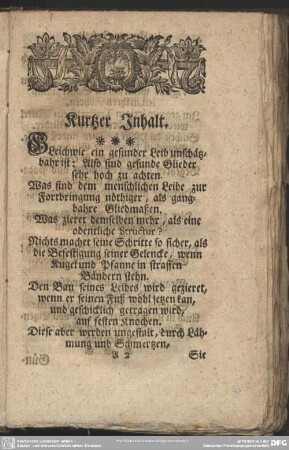 Kurtzer Inhalt.
* * *
GLeichwie ein gesunder Leib unschätz-
bahr ist: Also sind gesunde Glieder
sehr hoch zu achten.
Was sind dem menschlichen Leibe zur
Fortbringung nöthiger, als gang-
bahre Gliedmaßen.
Was zieret demselben mehr, als eine
odentliche Structur?
Nichts machet seine Schritte so sicher, als
die Befestigung seiner Gelencke, wenn
Kugel und Pfanne in straffen
Bändern stehn.
Den Bau seines Leibes wird gezieret,
wenn er seinen Fuß wohl setzen kan,
und geschicklich getragen wird,
auf festen Knochen.
Diese aber werden ungestalt, durch Läh-
mung und Schmertzen,
A 2 Sie
DFG